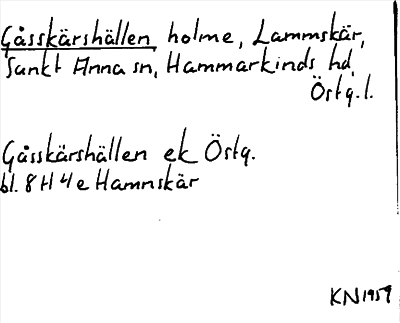 Gåsskärshällen holme, Lammskär,
Sankt Anna sn, Hammarkinds hd,
Östg. l.
Gåsskärshällen ek Östg.
bl. 8H 4e Hamnskär
KN 1959